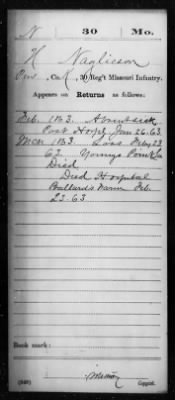 N 30 Mo.
H Naglieson
Pvt, Co. K, 30 Reg't Missouri Infantry.
Appears on Returns as follows:
Feb. 1863. Absent sick
Post Hospl Jan 26. 63.
Mch 1863 Loss Feby 23
63 Youngs Point La
Died
Died Hospital
Ballard's Farm Feb.
23-63
Book mark:
(546)
Copyist.